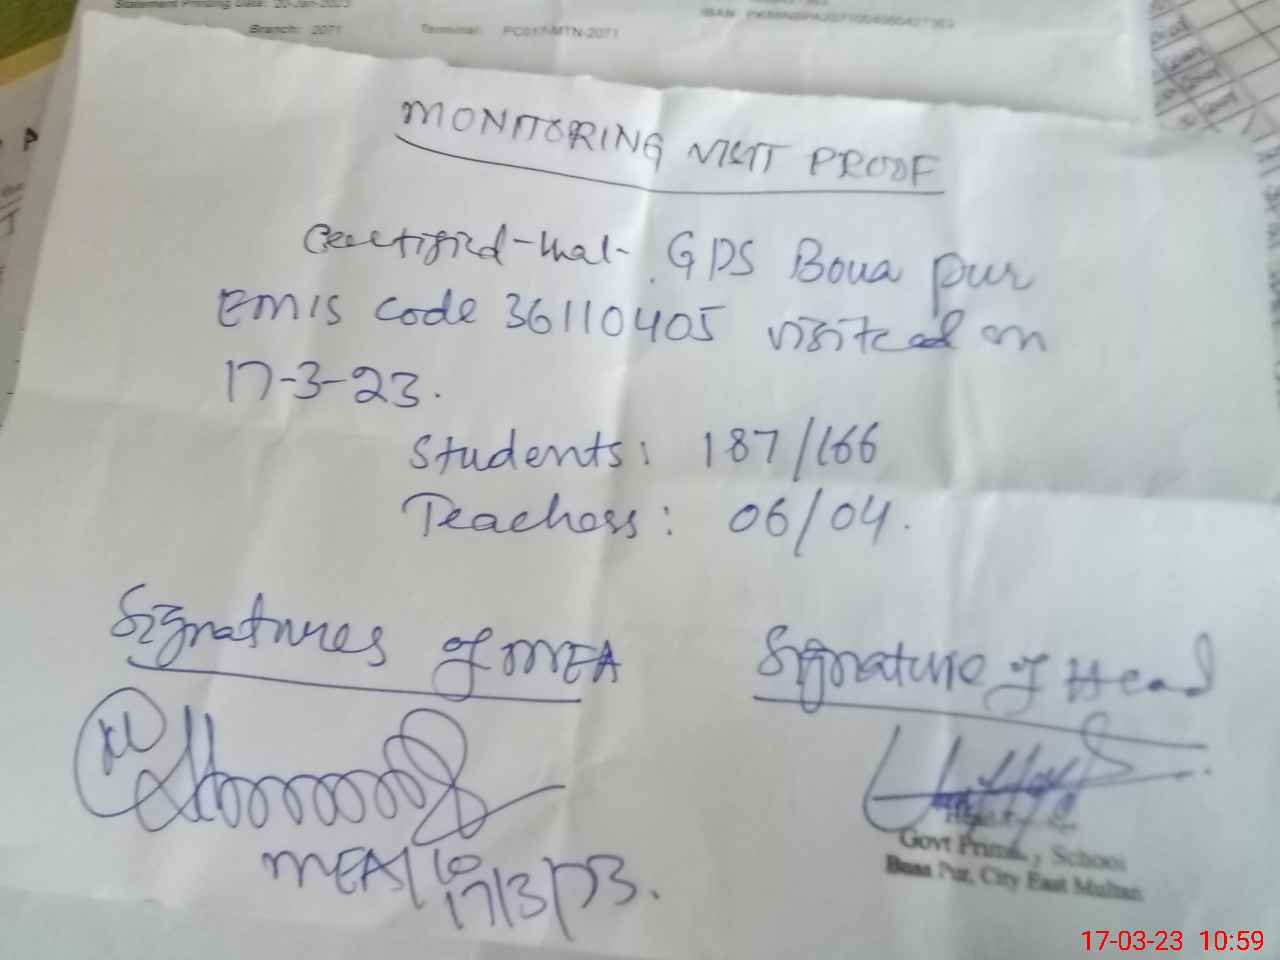 Statement Printing Date: 20-Jan-2023
Branch: 2071 Terminal: PC017-MTN-2071
MONITORING VISIT PROOF
Certified that GPS Boua pur
EMIS code 36110405 visited on
17-3-23.
Students: 187/166
Teachers: 06/04.
Signatures of MEA Signature of Head
MEA/
17/3/23.
Govt Primary School
Buaa Pur, City East Multan
17-03-23 10:59